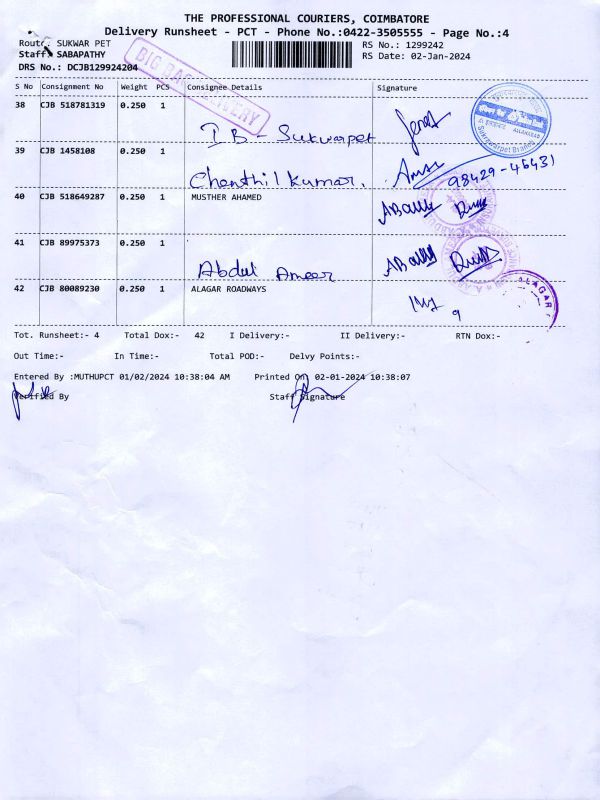 THE PROFESSIONAL COURIERS, COIMBATORE
Delivery Runsheet - PCT - Phone No.:0422-3505555 - Page No.:4
Route: SUKWAR PET
RS No.: 1299242
Staff: SABAPATHY
RS Date: 02-Jan-2024
DRS No.: DCJB129924204
BIG BAG DELIVERY
S No Consignment No Weight PCS Consignee Details Signature
38 CJB 518781319 0.250 1
I B - Sukwarpet
ALLAHABAD
Sukrawarpet Branch
39 CJB 1458108 0.250 1
Chenthil kumar. 98429-46431
40 CJB 518649287 0.250 1 MUSTHER AHAMED
41 CJB 89975373 0.250 1
Abdul Ameer
42 CJB 80089230 0.250 1 ALAGAR ROADWAYS
ALAGAR
Tot. Runsheet:- 4 Total Dox:- 42 I Delivery:- II Delivery:- RTN Dox:-
Out Time:- In Time:- Total POD:- Delvy Points:-
Entered By :MUTHUPCT 01/02/2024 10:38:04 AM Printed On 02-01-2024 10:38:07
Verified By Staff Signature